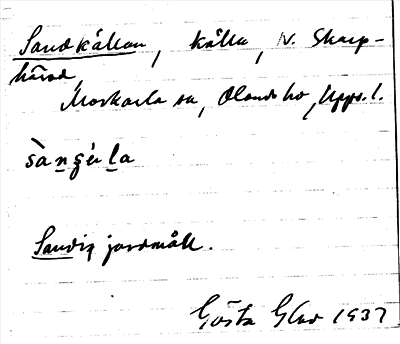 Sandkällan, källa, N. Skarp-
hårad,
Morkarla sn, Olands hd, Upps. l.
sàn̠ʂé̠l̠a
Sandig jordmån.
Gösta Glad 1937